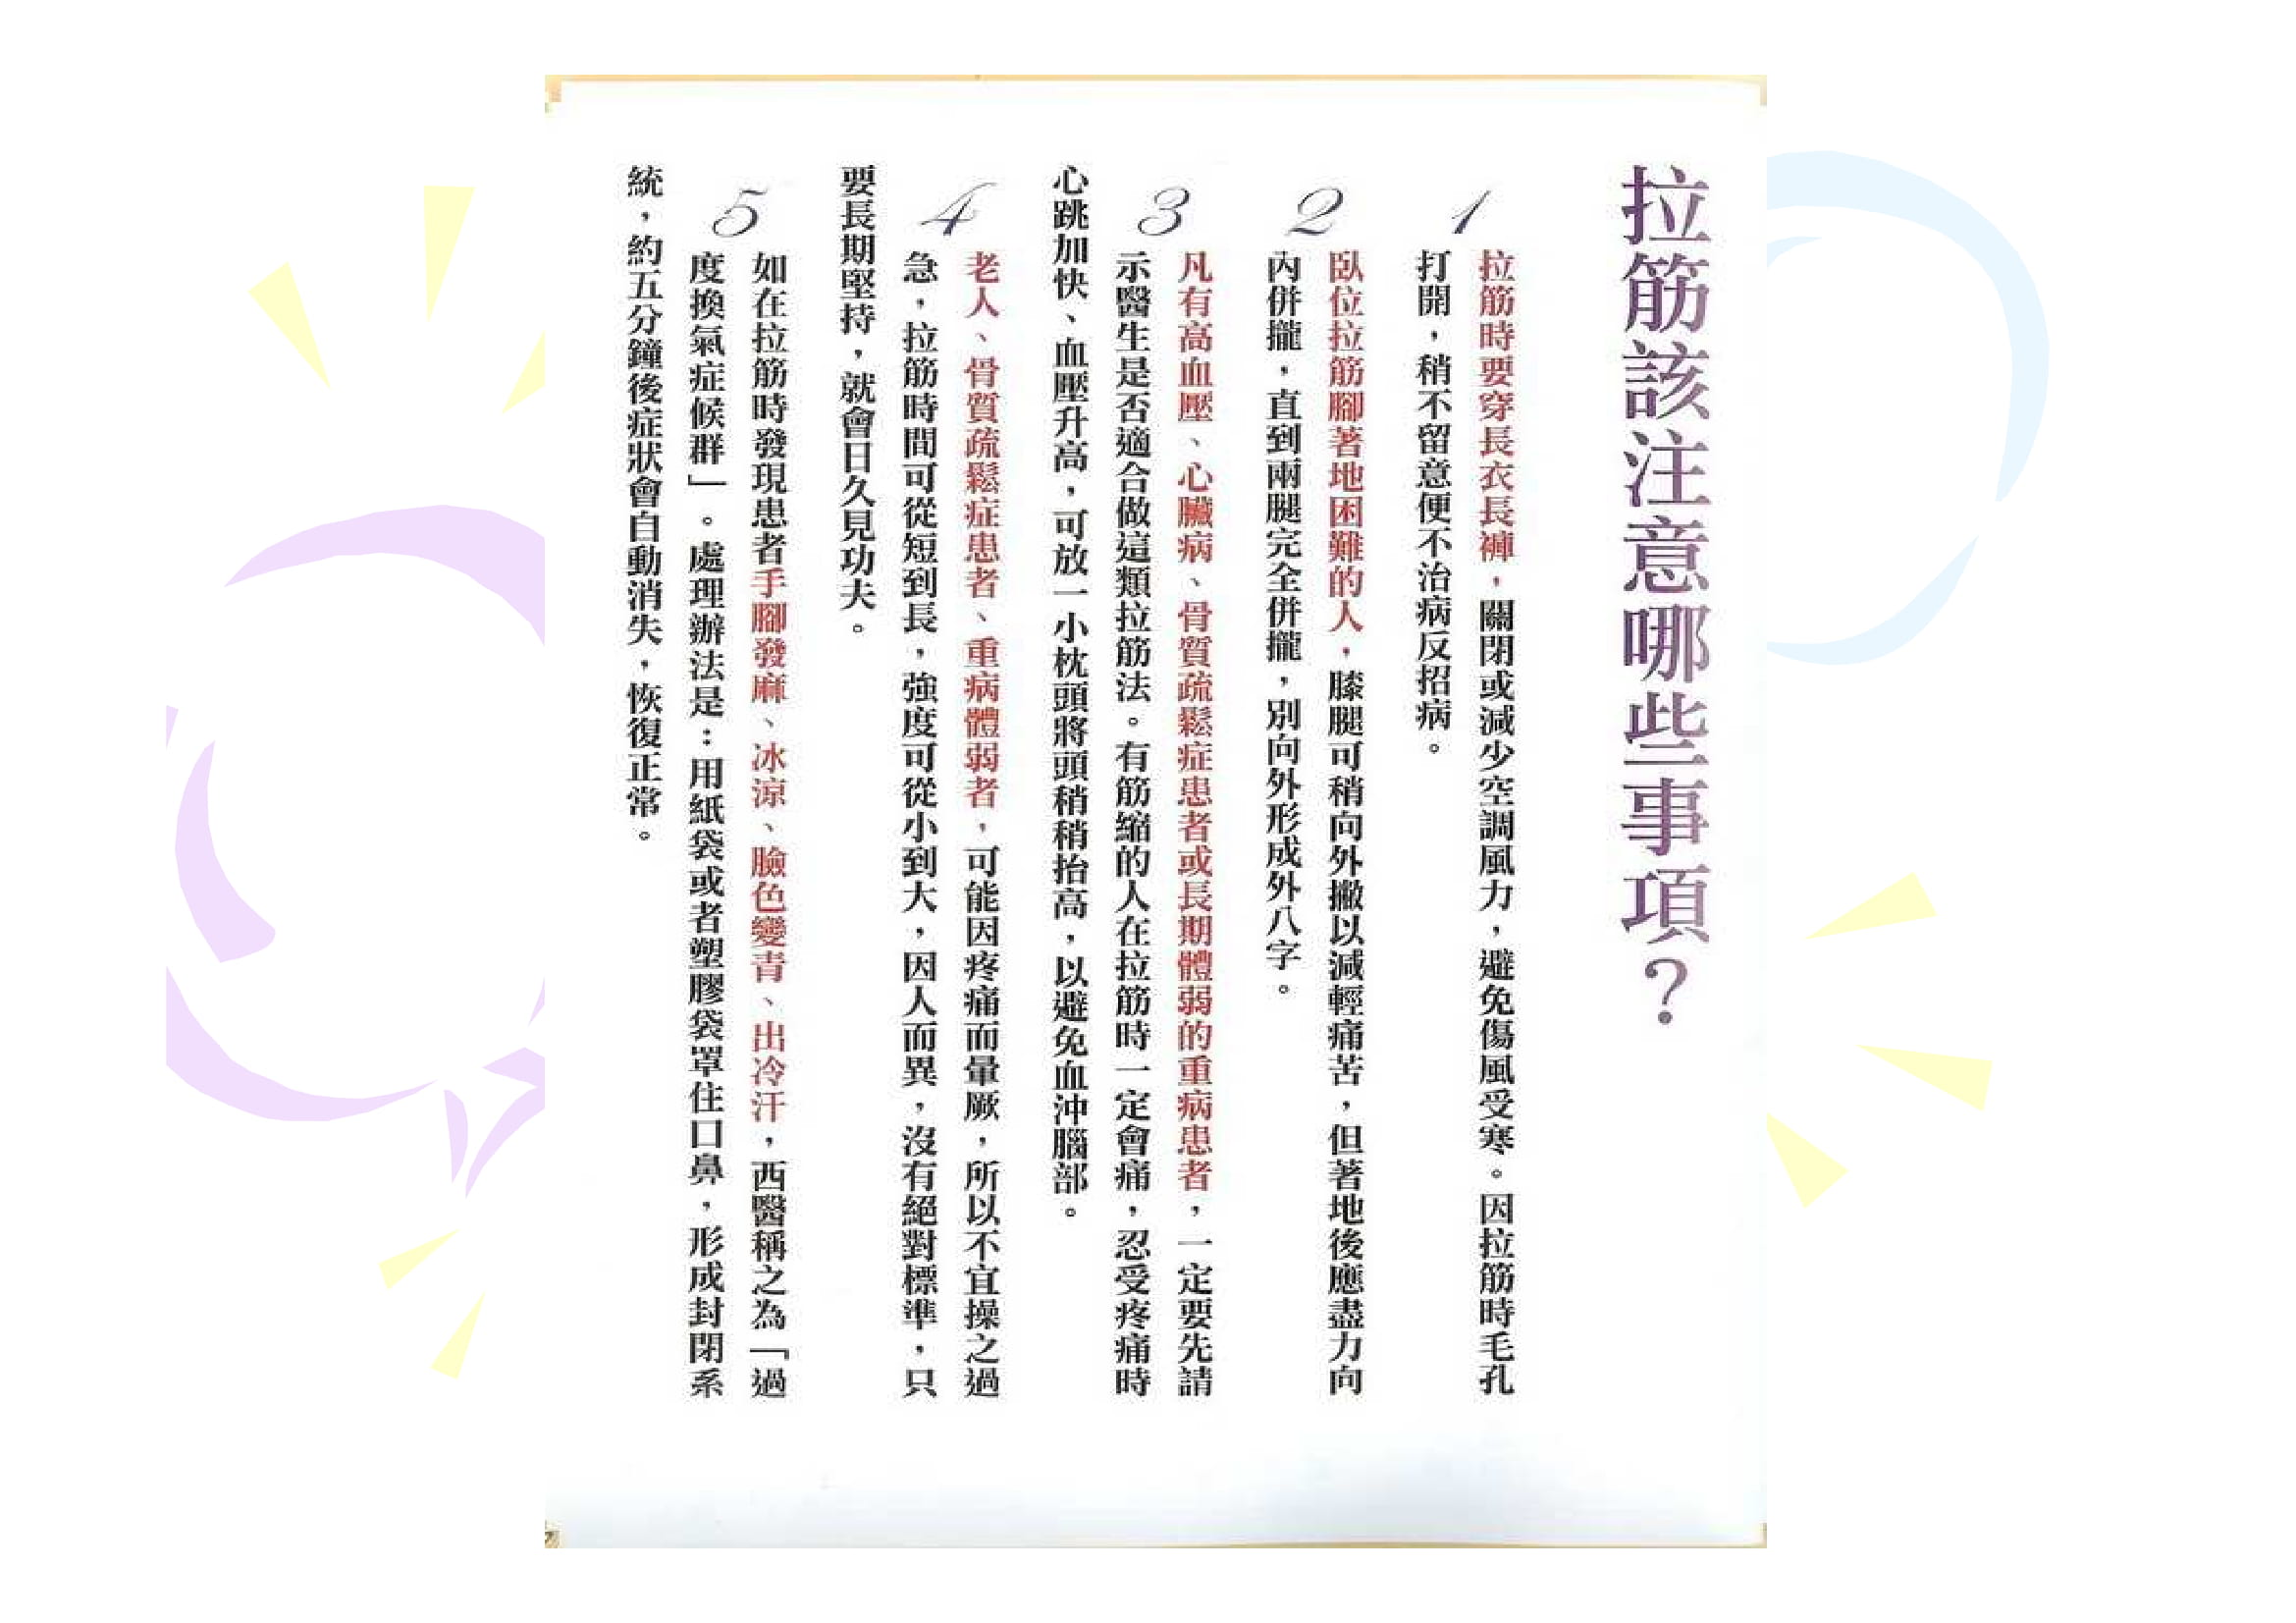 拉筋該注意哪些事項？
1
拉筋時要穿長衣長褲，關閉或減少空調風力，避免傷風受寒。因拉筋時毛孔
打開，稍不留意便不治病反招病。
2
臥位拉筋腳著地困難的人，膝腿可稍向外撇以減輕痛苦，但著地後應盡力向
內併攏，直到兩腿完全併攏，別向外形成外八字。
3
凡有高血壓、心臟病、骨質疏鬆症患者或長期體弱的重病患者，一定要先請
示醫生是否適合做這類拉筋法。有筋縮的人在拉筋時一定會痛，忍受疼痛時
心跳加快、血壓升高，可放一小枕頭將頭稍稍抬高，以避免血沖腦部。
4
老人、骨質疏鬆症患者、重病體弱者，可能因疼痛而暈厥，所以不宜操之過
急，拉筋時間可從短到長，強度可從小到大，因人而異，沒有絕對標準，只
要長期堅持，就會日久見功夫。
5
如在拉筋時發現患者手腳發麻、冰涼、臉色變青、出冷汗，西醫稱之為「過
度換氣症候群」。處理辦法是：用紙袋或者塑膠袋罩住口鼻，形成封閉系
統，約五分鐘後症狀會自動消失，恢復正常。